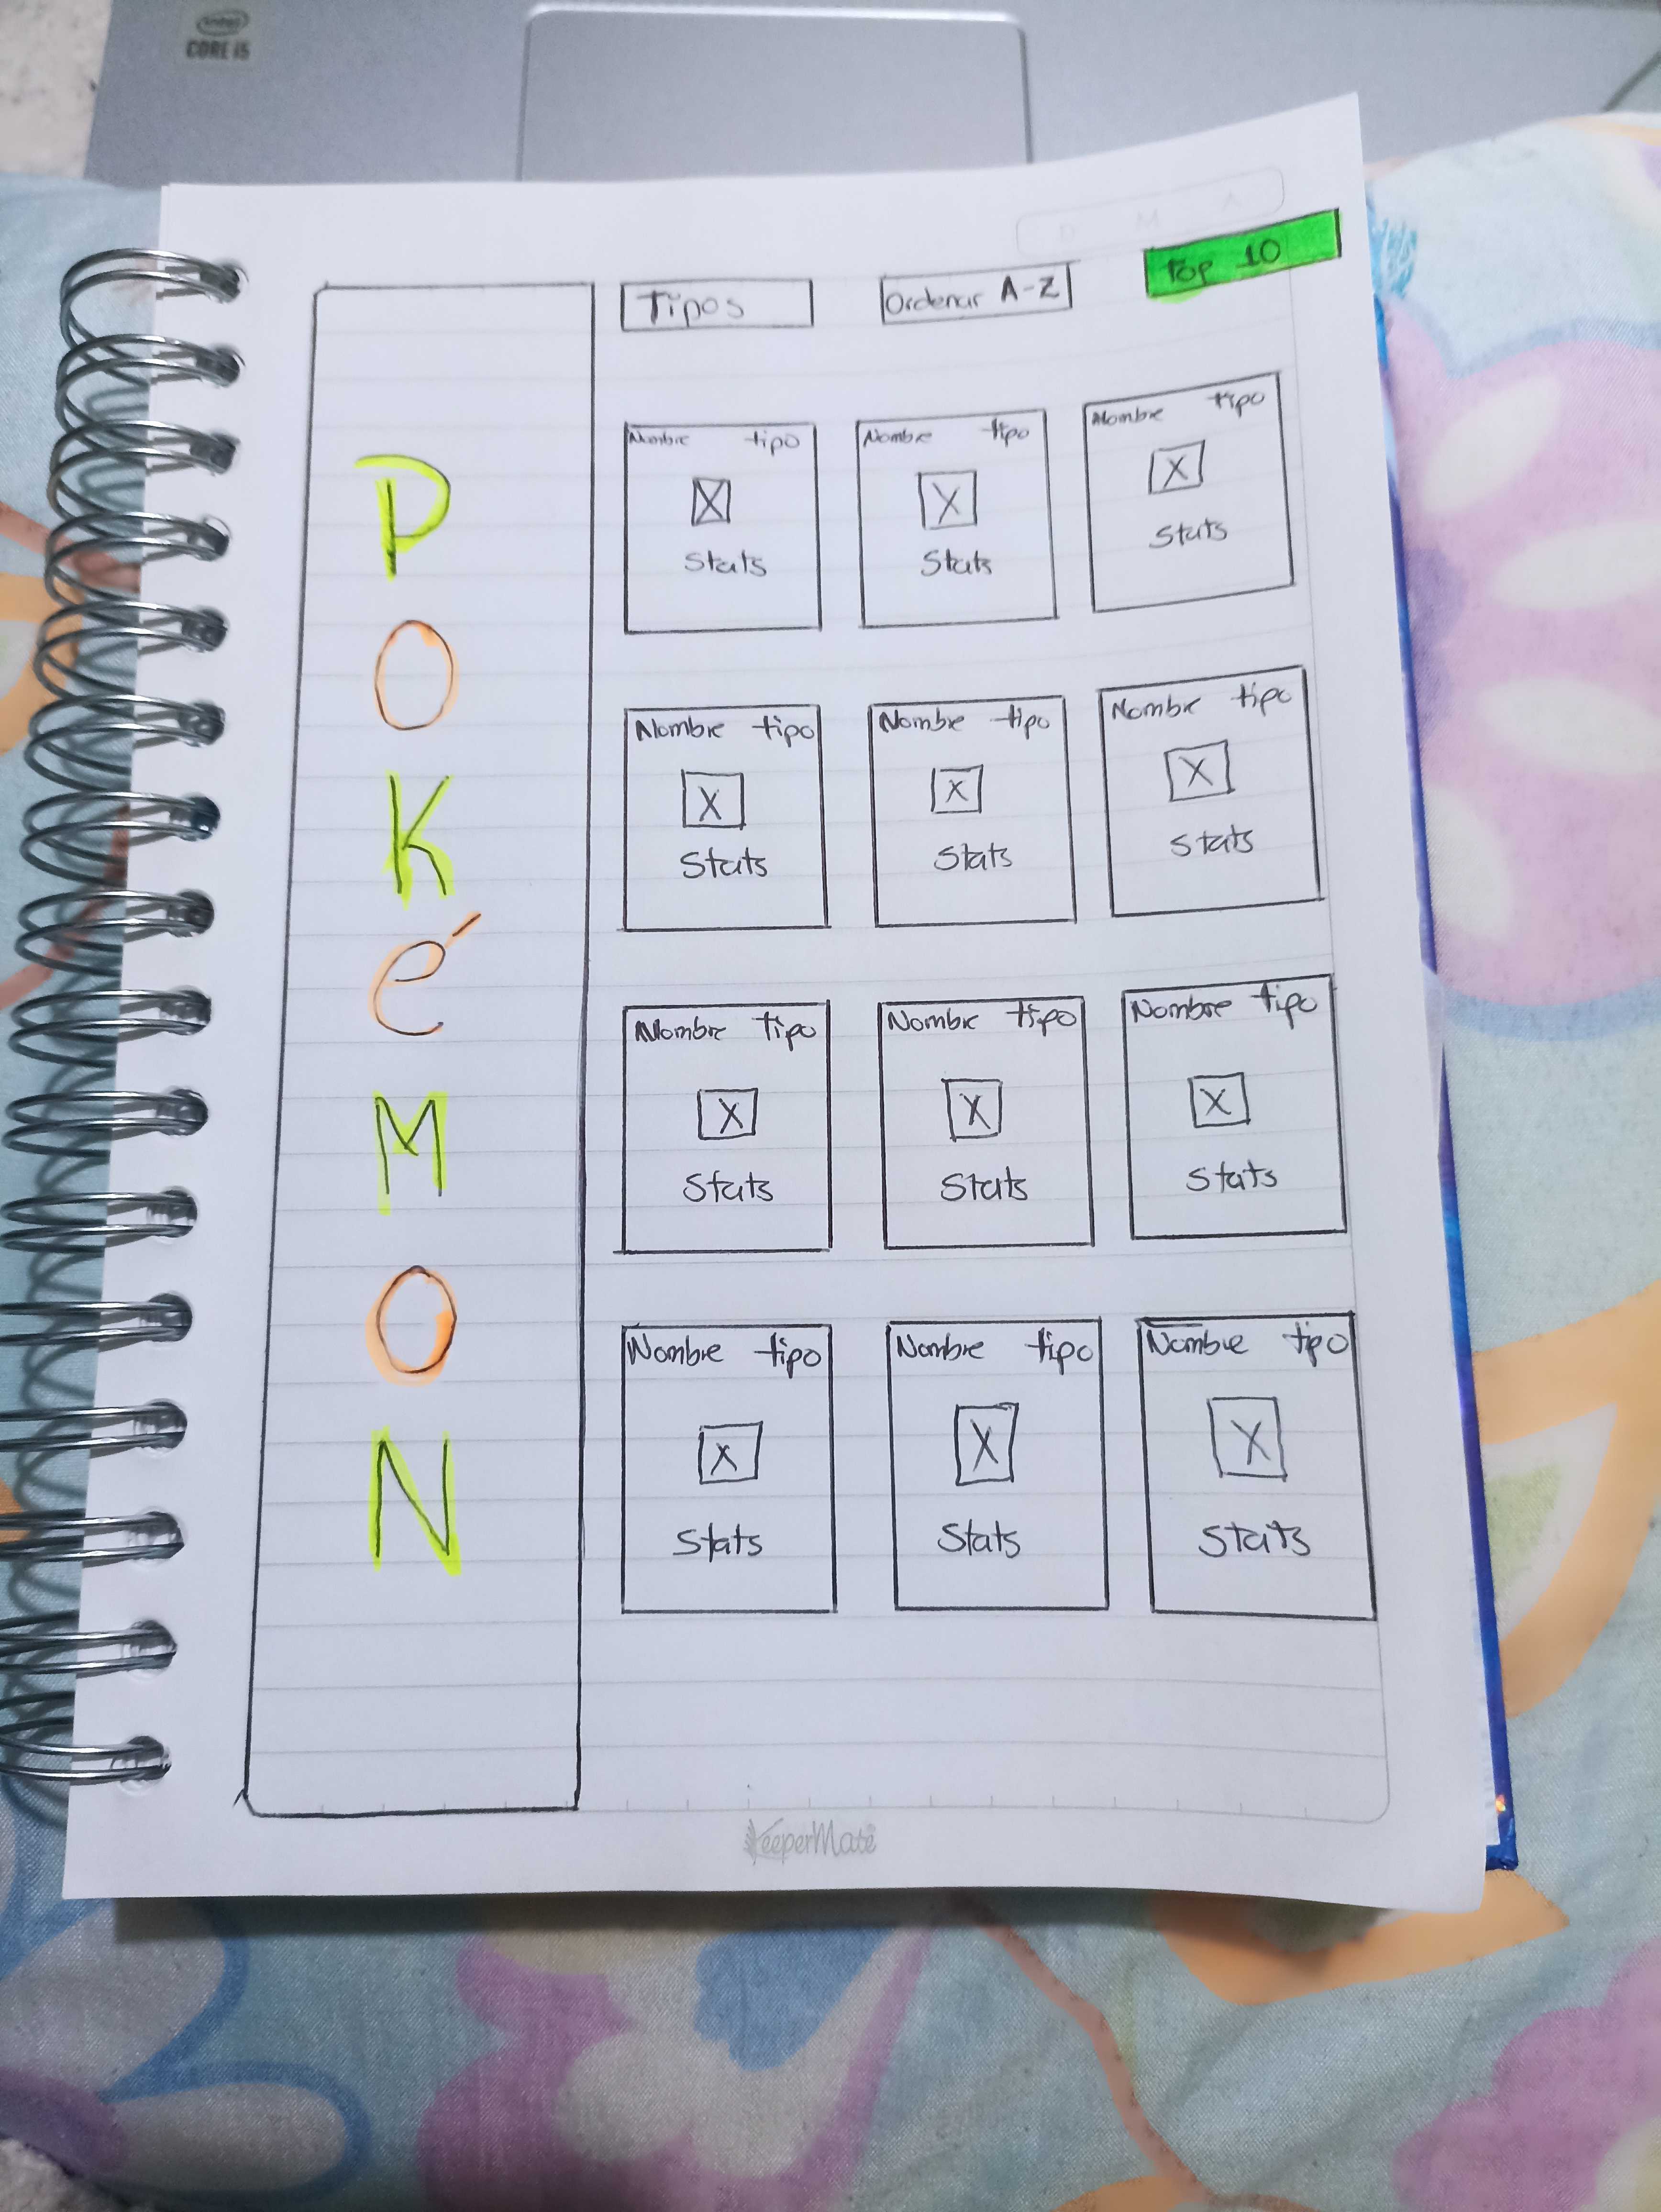 intel
CORE i5
D M A
Tipos
Ordenar A-Z
Top 10
P
O
K
é
M
O
N
Nombre tipo
X
Stats
Nombre tipo
X
Stats
Nombre tipo
X
Stats
Nombre tipo
X
Stats
Nombre tipo
X
Stats
Nombre tipo
X
Stats
Nombre tipo
X
Stats
Nombre tipo
X
Stats
Nombre tipo
X
Stats
Nombre tipo
X
Stats
Nombre tipo
X
Stats
Nombre tipo
X
Stats
KeeperMate